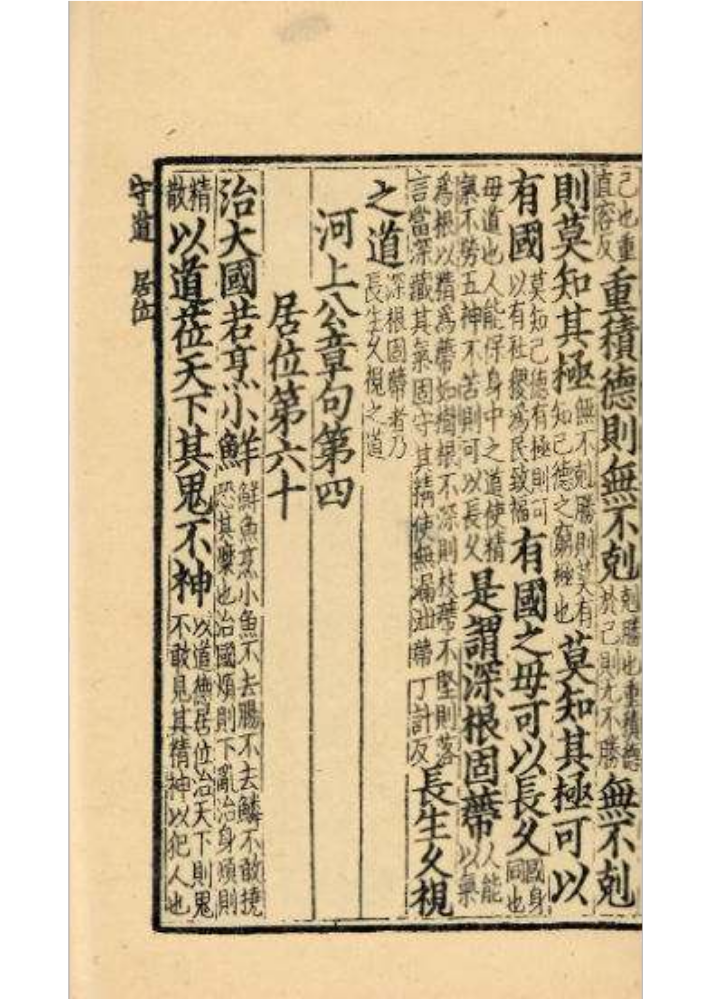 己也重直容反重積德則無不剋剋勝也重積德於己則无不勝無不剋
則莫知其極無不剋勝則莫有知己德之窮極也莫知其極可以
有國莫知己德有極則可以有社稷為民致福有國之母可以長久國身同也
母道也人能保身中之道使精氣不勞五神不苦則可以長久是謂深根固蔕人能以氣
為根以精為蔕如樹根不深則枝蔕不堅則落言當深藏其氣固守其精使無漏泄蔕丁計反長生久視
之道深根固蔕者乃長生久視之道
河上公章句第四
居位第六十
治大國若烹小鮮鮮魚烹小魚不去腸不去鱗不敢撓恐其糜也治國煩則下亂治身煩則
精散以道莅天下其鬼不神以道德居位治天下則鬼不敢見其精神以犯人也
守道 居位